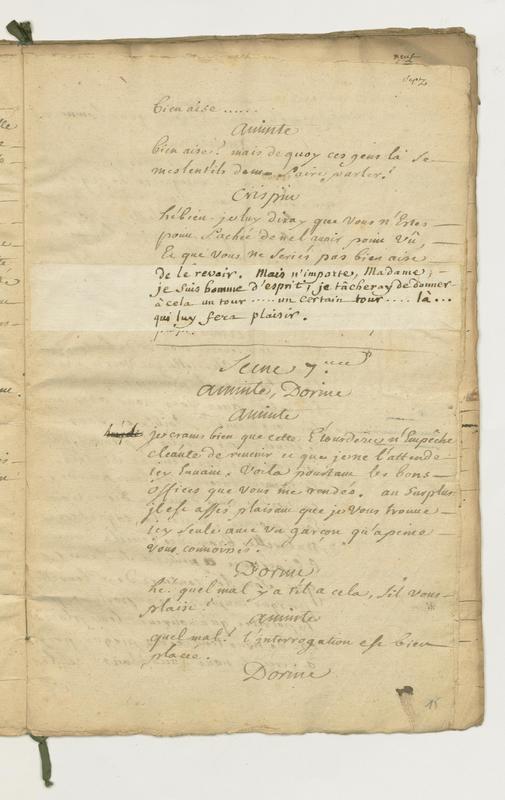 neuf
Sept
bien aise ......
Aminte
bien aise! mais de quoy ces gens là se
meslent ils de me faire parler?
Crispin
hé bien je luy diray que vous n'Estes
point fachée de ne l'avoir point Vû,
Et que vous ne seriés pas bien aise
de le revoir. Mais n'importe, Madame,
je suis homme d'esprit; je tâcheray de donner
à cela un tour ..... un certain tour .... là...
qui luy fera plaisir.
Scene 7.
Aminte, Dorine
Aminte
je crains bien que cette Etourderie n'Empêche
cleante de revenir et que je ne l'attende
icy Envain. Voila pourtant les bons
offices que vous me rendés. au surplus
il est assés plaisant que je vous trouve
icy seule avec un garçon qu'apeine
vous connoissés.
Dorine
hé. quel mal y a t'il a cela, s'il vous
plaist?
Aminte
quel mal! l'interrogation est bien
placée.
Dorine